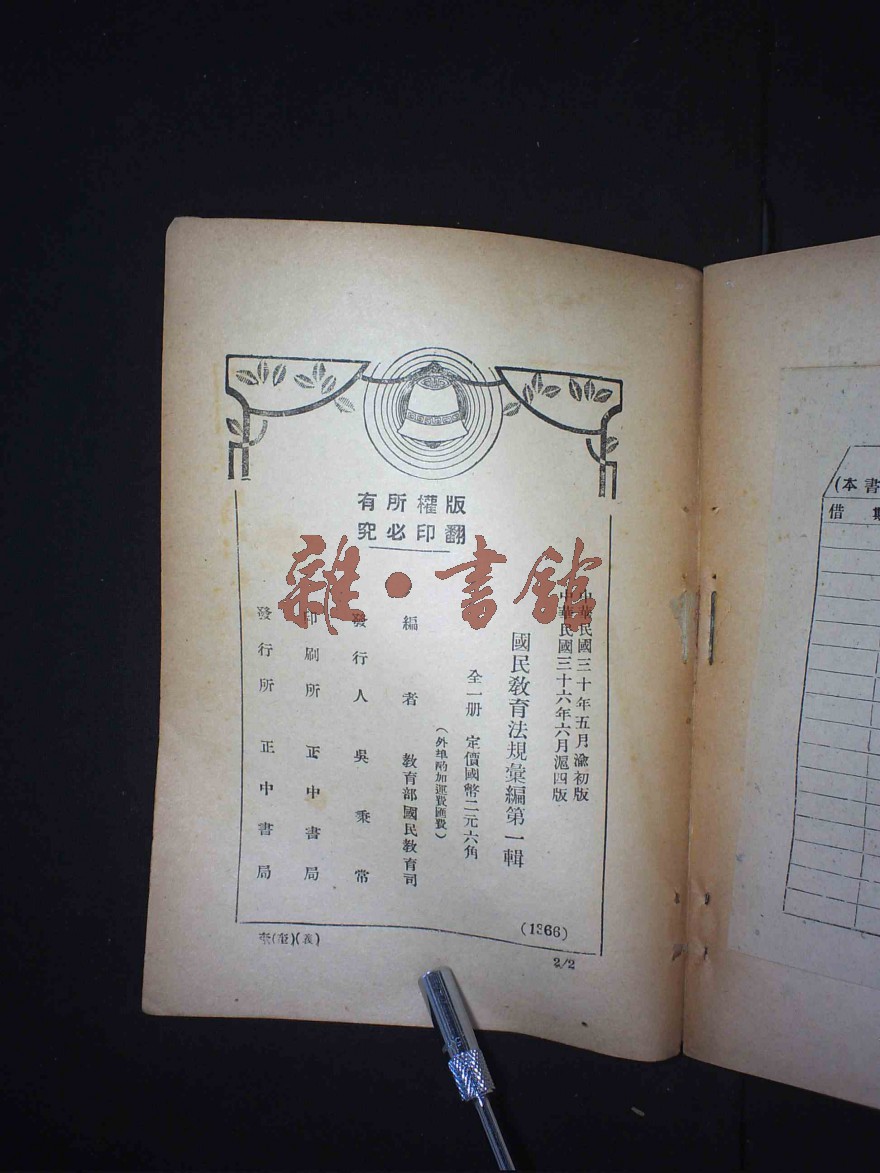 版權所有
翻印必究
雜·書館
中華民國三十年五月渝初版
中華民國三十六年六月滬四版
國民教育法規彙編第一輯
全一册 定價國幣二元六角
(外埠酌加運費匯費)
編者 教育部國民教育司
發行人 吳秉常
印刷所 正中書局
發行所 正中書局
(1366)
2/2
(本書
借